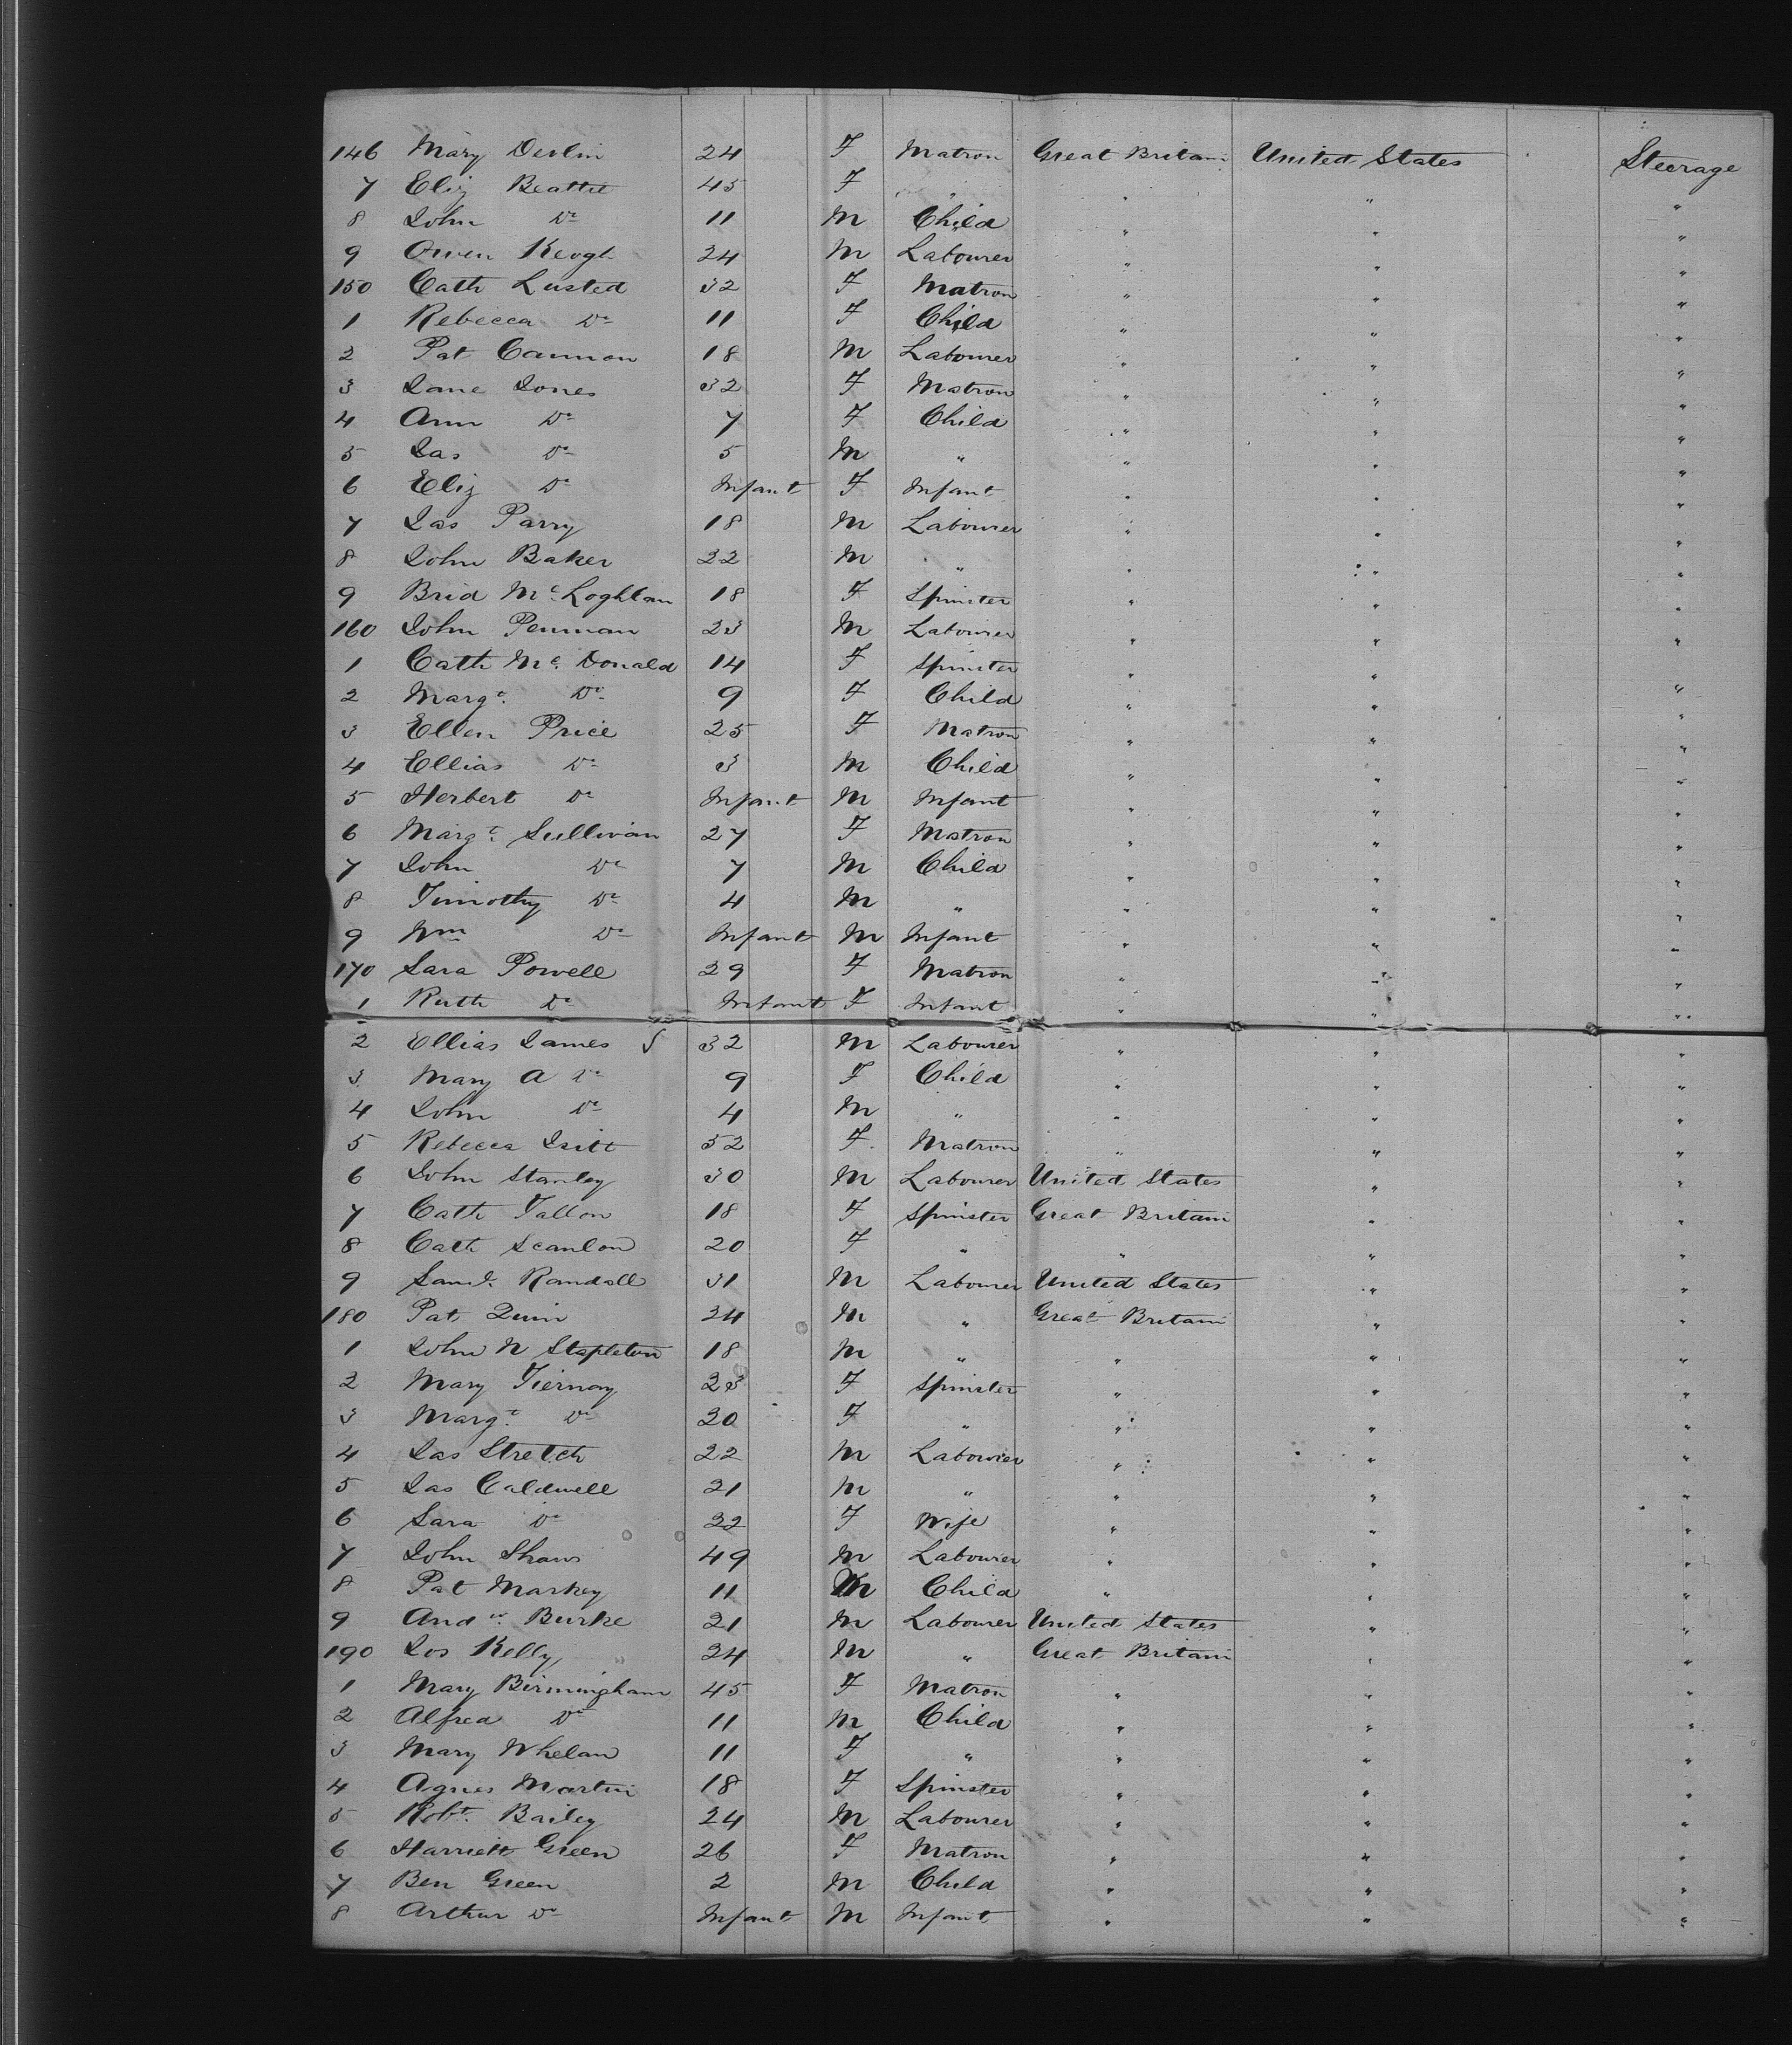 146 Mary Devlin 24 F Matron Great Britain United States Steerage
7 Eliz Beattie 45 F " " " "
8 John Do 11 M Child " " "
9 Owen Keogh 24 M Labourer " " "
150 Cath Lusted 32 F Matron " " "
1 Rebecca Do 11 F Child " " "
2 Pat Cannon 18 M Labourer " " "
3 Jane Jones 32 F Matron " " "
4 Ann Do 7 F Child " " "
5 Jas Do 5 M " " " "
6 Eliz Do Infant F Infant " " "
7 Jas Parry 18 M Labourer " " "
8 John Baker 22 M " " " "
9 Brid McLoghlan 18 F Spinster " " "
160 John Penman 23 M Labourer " " "
1 Cath McDonald 14 F Spinster " " "
2 Margt Do 9 F Child " " "
3 Ellen Price 25 F Matron " " "
4 Ellias Do 3 M Child " " "
5 Herbert Do Infant M Infant " " "
6 Margt Sullivan 27 F Matron " " "
7 John Do 7 M Child " " "
8 Timothy Do 4 M " " " "
9 Wm Do Infant M Infant " " "
170 Sara Powell 29 F Matron " " "
1 Ruth Do Infant F Infant " " "
2 Ellias James 32 M Labourer " " "
3 Mary A Do 9 F Child " " "
4 John Do 4 M " " " "
5 Rebecca 52 F Matron " " "
6 John Stanley 30 M Labourer United States " "
7 Cath Fallon 18 F Spinster Great Britain " "
8 Cath Scanlon 20 F " " " "
9 Saml Randall 31 M Labourer United States " "
180 Pat Quin 24 M " Great Britain " "
1 John N Stapleton 18 M " " " "
2 Mary Tiernay 23 F Spinster " " "
3 Margt Do 20 F " " " "
4 Jas Stretch 22 M Labourer " " "
5 Jas Caldwell 21 M " " " "
6 Sara Do 22 F Wife " " "
7 John Shaw 49 M Labourer " " "
8 Pat Markey 11 M Child " " "
9 Andw Burke 21 M Labourer United States " "
190 Jos Kelly 24 M " Great Britain " "
1 Mary Birmingham 45 F Matron " " "
2 Alfred Do 11 M Child " " "
3 Mary Whelan 11 F " " " "
4 Agnes Martin 18 F Spinster " " "
5 Robt Bailey 24 M Labourer " " "
6 Harriett Green 26 F Matron " " "
7 Ben Green 2 M Child " " "
8 Arthur Do Infant M Infant " " "